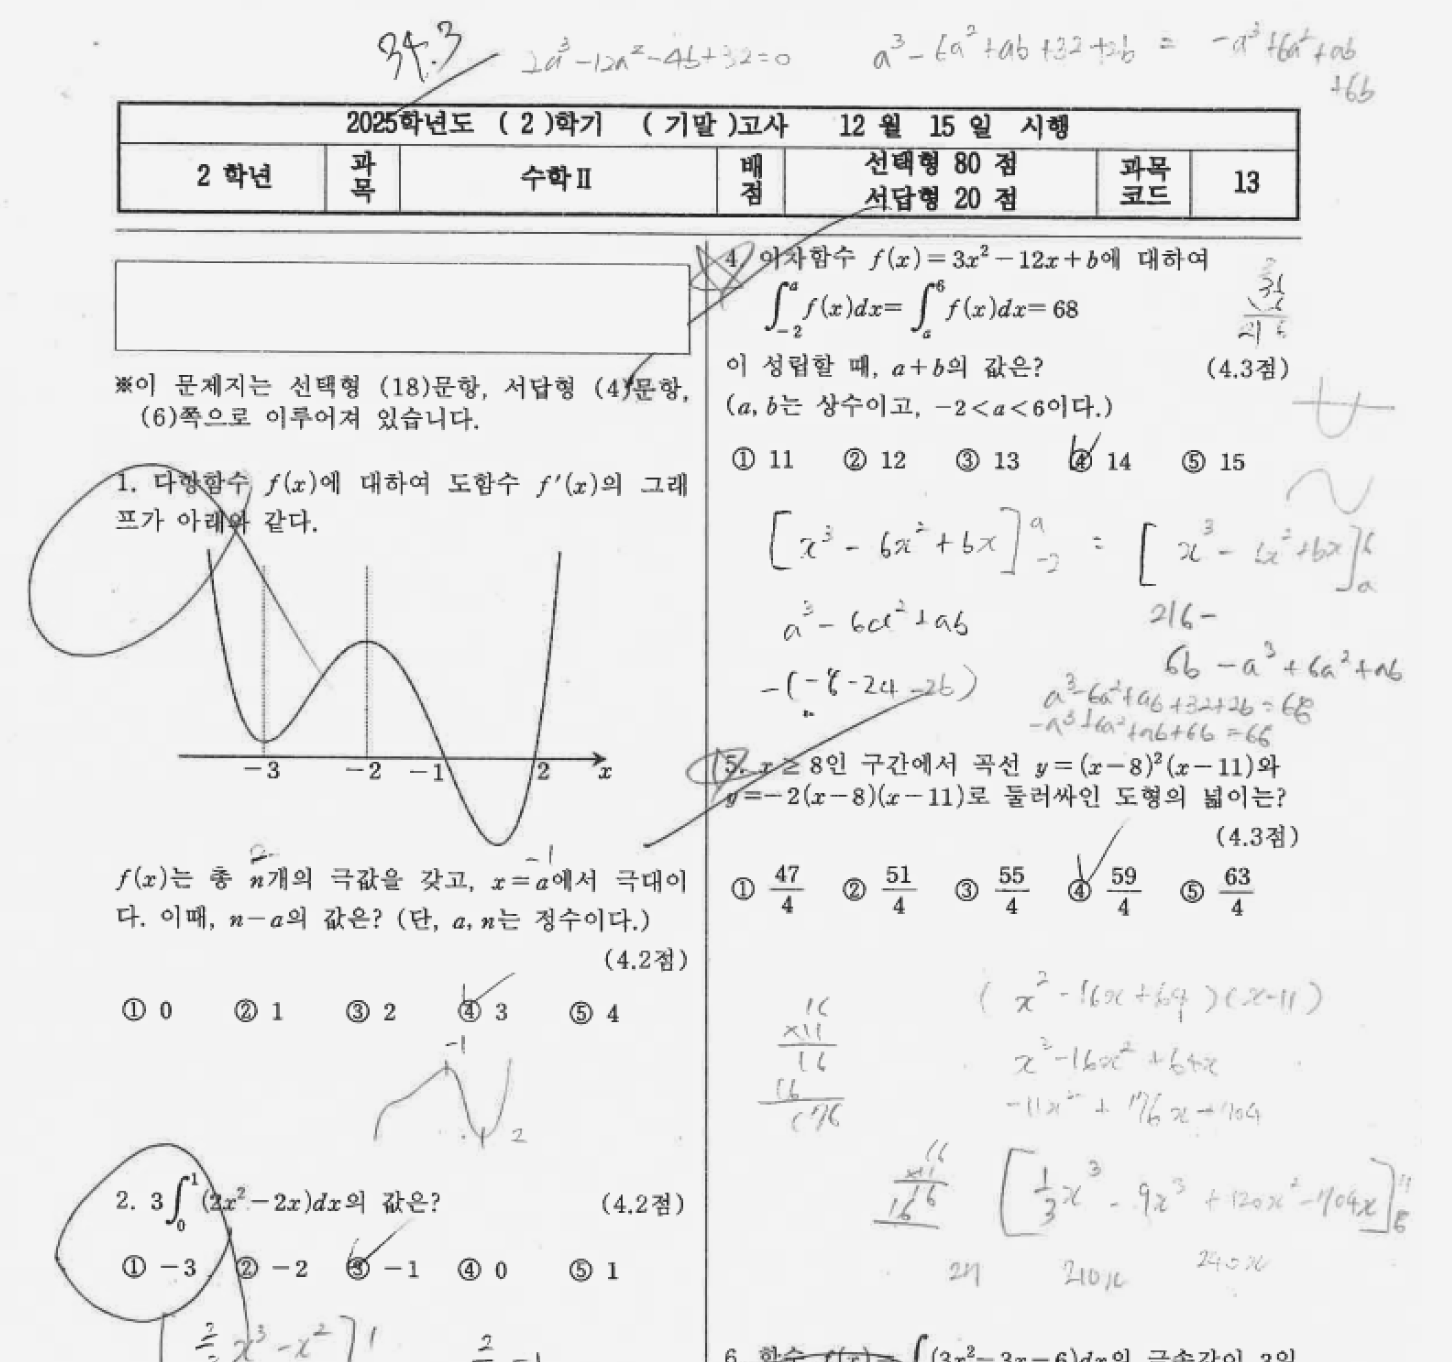 34.3
2a³-12a²-4b+32=0
a³-6a²+ab+32+2b = -a³+6a²+ab
+6b
2025학년도 ( 2 )학기 ( 기말 )고사 12 월 15 일 시행
2 학년 과목 수학Ⅱ 배점 선택형 80 점 서답형 20 점 과목코드 13
※이 문제지는 선택형 (18)문항, 서답형 (4)문항,
(6)쪽으로 이루어져 있습니다.
1. 다항함수 f(x)에 대하여 도함수 f'(x)의 그래
프가 아래와 같다.
-3 -2 -1 2 x
f(x)는 총 n개의 극값을 갖고, x=a에서 극대이
다. 이때, n-a의 값은? (단, a, n는 정수이다.)
(4.2점)
① 0 ② 1 ③ 2 ④ 3 ⑤ 4
-1
2
2. 3∫₀¹(2x²-2x)dx의 값은? (4.2점)
① -3 ② -2 ③ -1 ④ 0 ⑤ 1
x³-x² 1
4. 이차함수 f(x)=3x²-12x+b에 대하여
∫₋₂ᵃ f(x)dx=∫ₐ⁶ f(x)dx=68
이 성립할 때, a+b의 값은? (4.3점)
(a, b는 상수이고, -2<a<6이다.)
① 11 ② 12 ③ 13 ④ 14 ⑤ 15
36
6
216
[x³-6x²+bx]ᵃ₋₂ = [x³-6x²+bx]⁶ₐ
a³-6a²+ab
216-
6b -a³+6a²+ab
-(-8-24-2b)
a³-6a²+ab+32+2b=68
-a³+6a²+ab+6b=68
5. x≥8인 구간에서 곡선 y=(x-8)²(x-11)와
y=-2(x-8)(x-11)로 둘러싸인 도형의 넓이는?
(4.3점)
① 47/4 ② 51/4 ③ 55/4 ④ 59/4 ⑤ 63/4
(x²-16x+64)(x-11)
16
×11
16
16
176
x³-16x²+64x
-11x²+176x-704
16
×11
16
16
[1/3x³-9x³+120x²-704x]¹¹₈
27
210x
240x
6. 함수 f(x)=∫(3x²-3x-6)dx의 극솟값이 3일